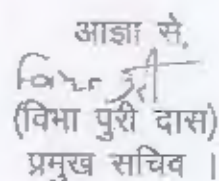 आज्ञा से,
(विभा पुरी दास)
प्रमुख सचिव ।